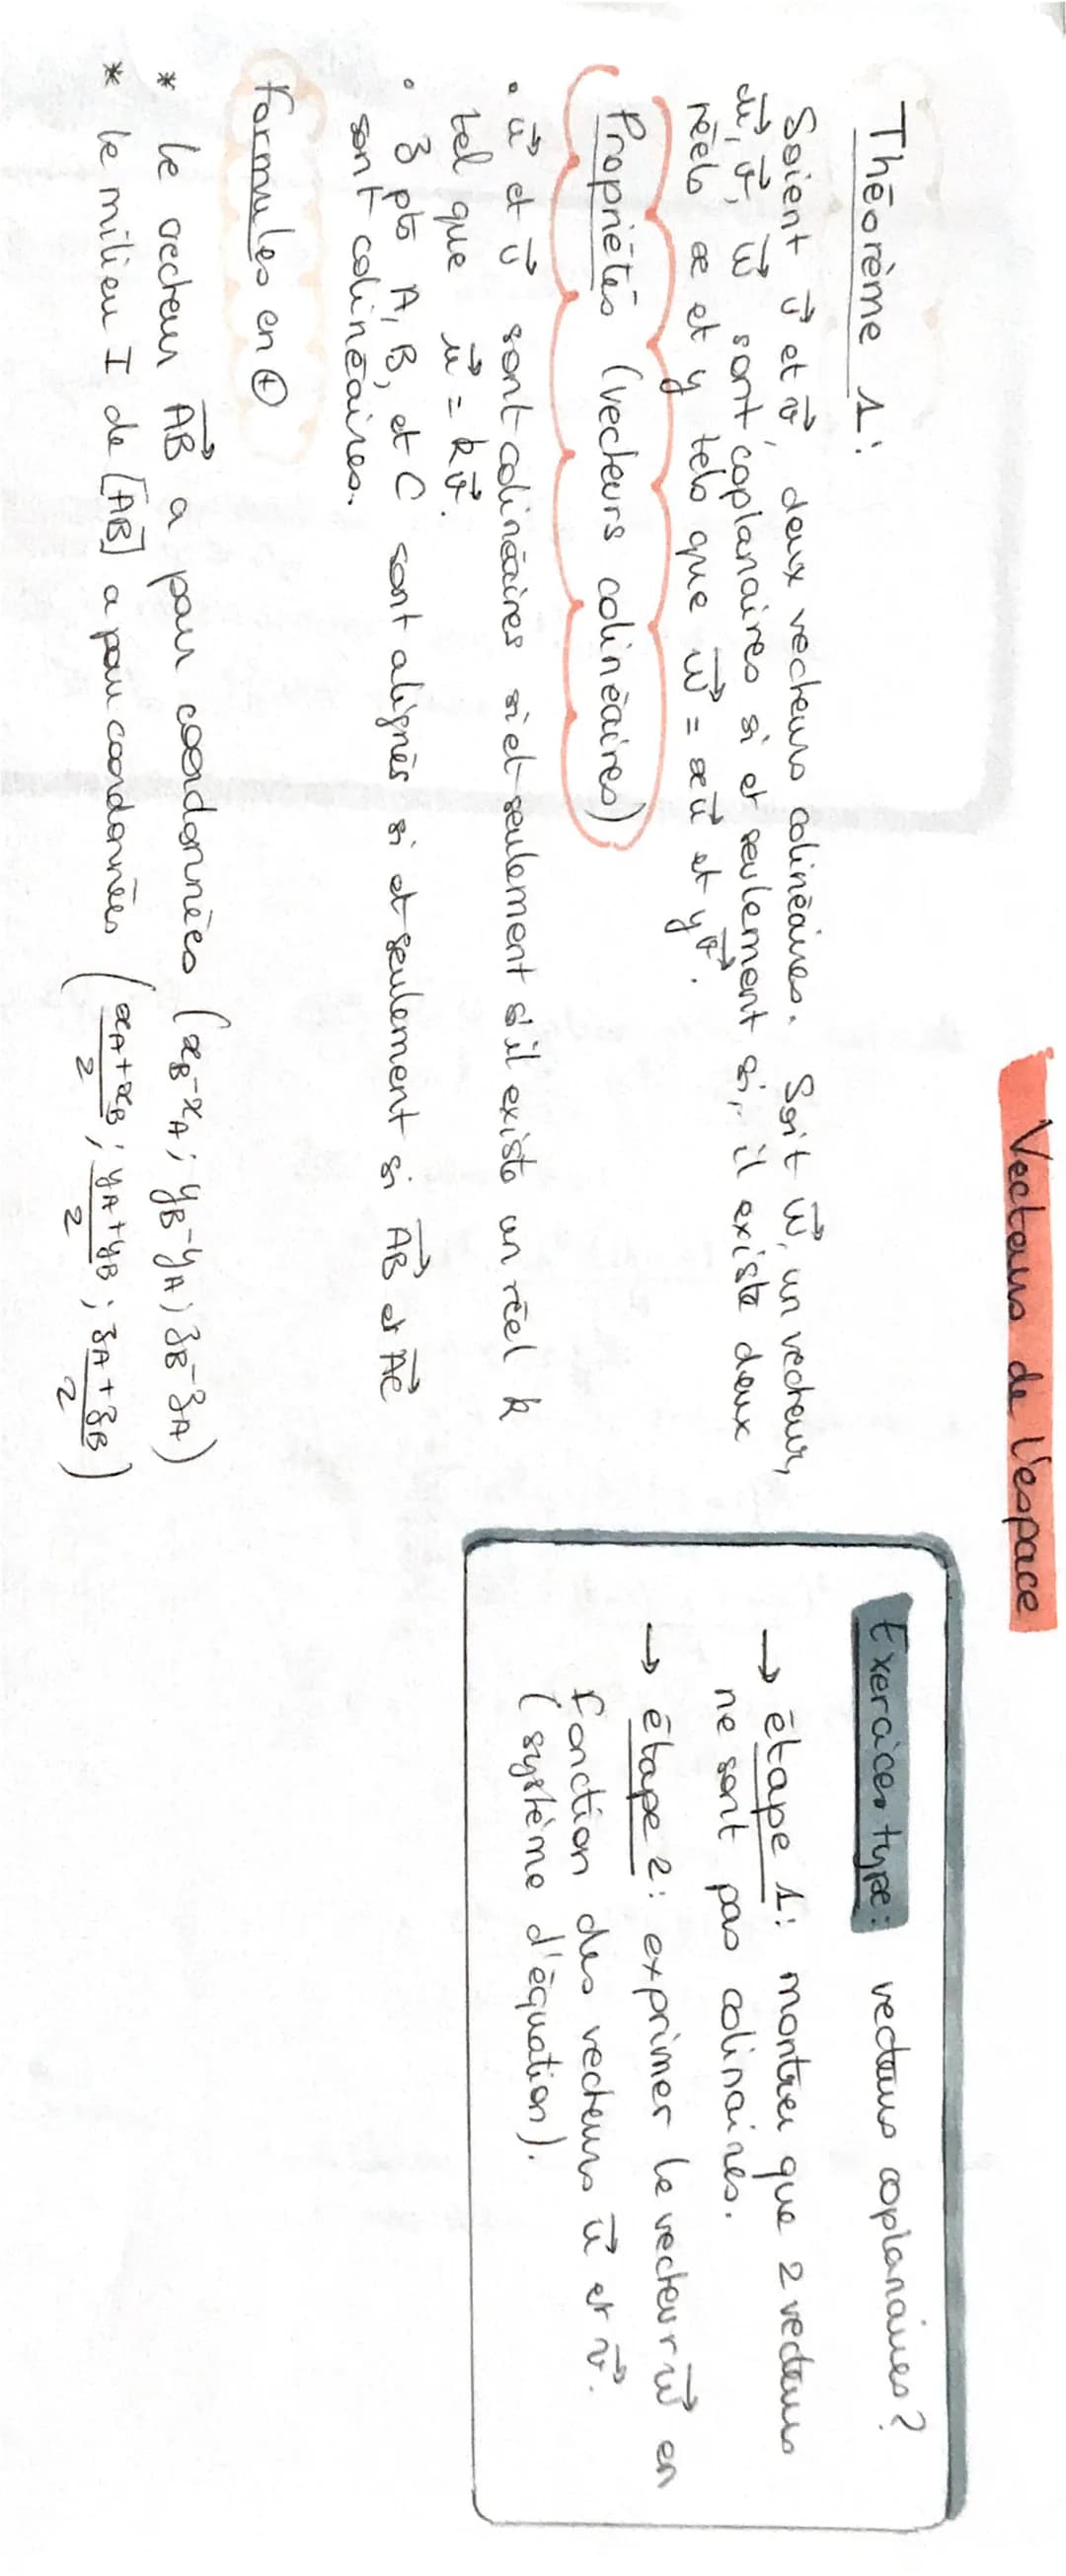 Vecteurs de l'espace
Théorème 1:
Soient \vec{u} et \vec{v}, deux vecteurs colinéaires. Soit \vec{w}, un vecteur,
\vec{u}, \vec{v}, \vec{w} sont coplanaires si et seulement si, il existe deux
réels x et y tels que \vec{w} = x\vec{u} et y\vec{v}.
Propriétés (vecteurs colinéaires)
• \vec{u} et \vec{v} sont colinéaires si et seulement s'il existe un réel k
tel que \vec{u} = k\vec{v}.
• 3 pts A, B, et C sont alignés si et seulement si \vec{AB} et \vec{AC}
sont colinéaires.
Formules en ⊕
* le vecteur \vec{AB} a pour coordonnées (x_B - x_A ; y_B - y_A ; z_B - z_A)
* le milieu I de [AB] a pour coordonnées (\frac{x_A + x_B}{2} ; \frac{y_A + y_B}{2} ; \frac{z_A + z_B}{2})
Exercices type: vecteurs coplanaires?
→ étape 1: montrer que 2 vecteurs
ne sont pas colinaires.
→ étape 2: exprimer le vecteur \vec{w} en
fonction des vecteurs \vec{u} et \vec{v}.
(système d'équation).